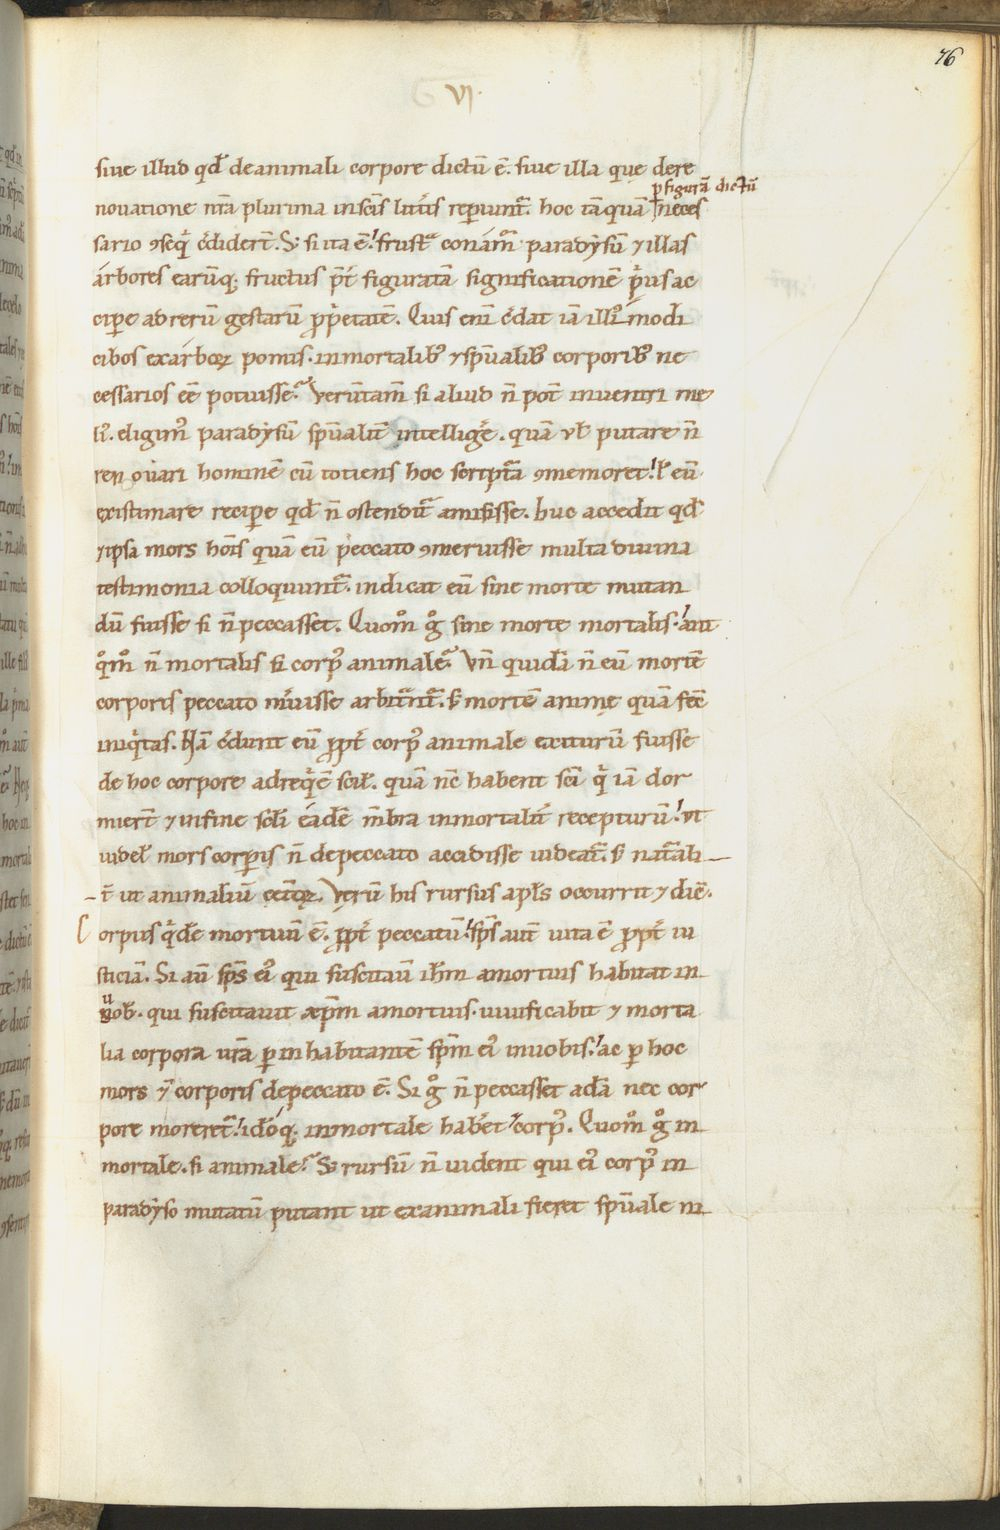 76
VI·
siue illud qd̄ de animali corpore dictū ē. siue illa quę dere
p̱ figurā dictū
nouatione n̄ra plurima in sc̄is litt̄is rep̱iunt̄. hoc tā quā neces
sario ꝯseq̄ c̄diderī. S; si ita ē! frustᵃ conam̊ paradẏsū ⁊ illas
arbores earūq; fructus p̄t̄ figuratā significationē p̱us ac
cip̱e ad rerū gestarū p̱p̱etatē. Quis eni c̄dat iā illi᾽modi
cibos ex arboꝝ pomis· inmortalib᾽ ⁊ sp̄ualib᾽ corporib᾽ ne
cessarios ēē potuisse? Verūtam̄ si aliud n̄ pot̄ inueniri me
li᾽. eligim᾽ paradysū sp̄ualit̄ intelliḡe. quā ut̄ putare n̄
renouari hominē cū totiens hoc sc̄riptᵃ ꝯmemoret! ł eū
existimare recip̱e qd̄ n̄ ostendit̄ amisisse. huc accedit qd̄
⁊ ipsa mors hoīs quā eū peccato ꝯmeruisse multa diuina
testimonia colloquunt̄. indicat eū sine morte mutan
dū fuisse si n̄ peccasset. Quom̊ g̊ sine morte mortalis! aut
q̊m̊ n̄ mortalis si corp᾽ animale? Vn̄ quidā n̄ eū mortē
corporis peccato m̄uisse arbitrant̄. s; mortē animę quā fec̄
iniq̇tas. Nā c̄dunt eū p̱pt̄ corp᾽ animale exiturū fuisse
de hoc corpore ad req̇ē scił. quā nc̄ habent sc̄i q̇ iā dor
mierī ⁊ in fine sc̄li eadē m̄bra inmortalit̄ recepturū! ut
uideł mors corp̱is n̄ de peccato accidisse uideat̄. s; nat̄ali
t̄ ut animaliū cet̄oꝝ. Verū his rursus apl̄s occurrit ⁊ dic̄.
Corpus q̇dē mortuū ē. p̱pt̄ peccatū! sp̄s aut̄ uita ē p̱pt̄ iu
sticiā. Si au̅ sp̄s ei᾽ qui suscitauit̄ ih̄m a mortuis habitat in
uob̄. qui suscitauit xp̄m a mortuis· uiuificabit ⁊ morta
lia corpora ur̄a p̱ inhabitantē sp̄m ei᾽ in uobis! ac p̱ hoc
mors ⁊ corporis de peccato ē. Si g̊ n̄ peccasset adā nec cor
pore moreret̄! idōq; inmortale hab̄et corp᾽. Quom̊ g̊ in
mortale. si animale? S; rursū n̄ uident qui ei᾽ corp᾽ in
paradẏso mutatū putant ut ex animali fieret sp̄uale ni